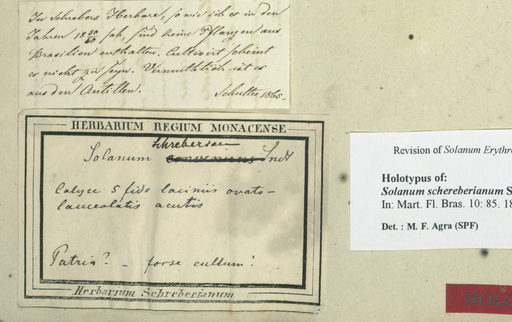 In Schrebers Herbare, so wie ich es in den
Jahren 18 50/60 sah, sind keine Pflanzen aus
Brasilien enthalten. Cultivirt scheint
es nicht zu seyn. Vermuthlich ist es
aus den Antillen. Schultes, 1865.
HERBARIUM REGIUM MONACENSE
Schreberian
Solanum convenius Sndt
Calyce 5 fido laciniis ovato-
lanceolatis acutis
Patria? - forse cultum?
Herbarium Schreberianum
Revision of Solanum Erythro
Holotypus of:
Solanum schereberianum S
In: Mart. Fl. Bras. 10: 85. 18
Det. : M. F. Agra (SPF)